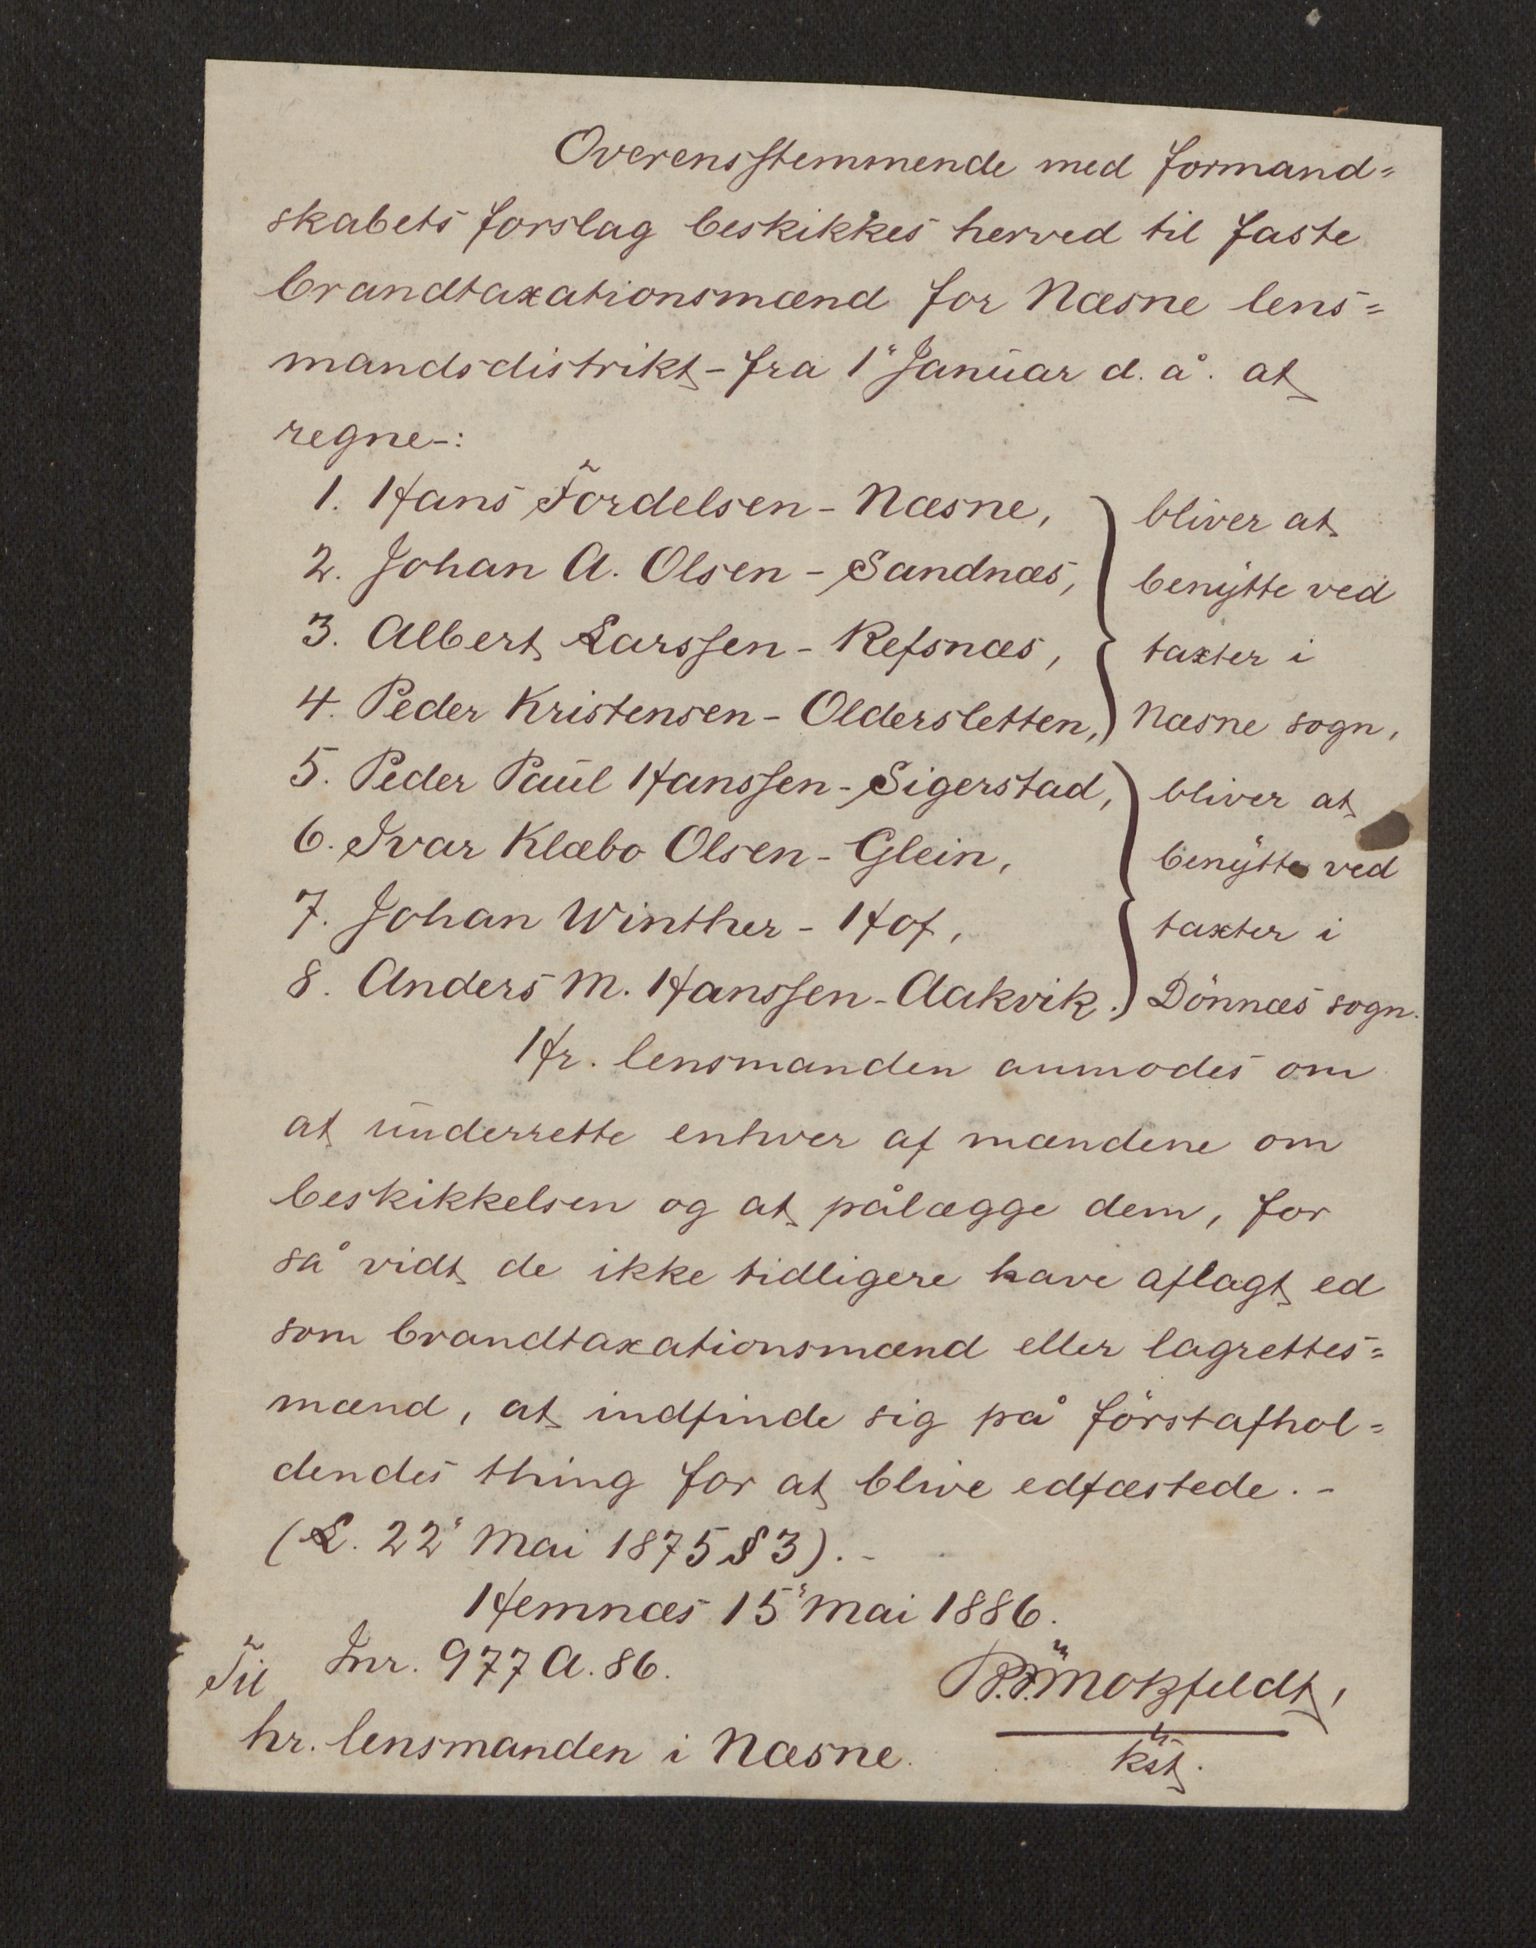 Overensstemmende med formand=
skabets forslag beskikkes herved til faste
brandtaxationsmænd for Næsne lens=
mandsdistrikt - fra 1" Januar d. å. at
regne -:
1. Hans Tördelsen - Næsne,
2. Johan A. Olsen - Sandnæs,
3. Albert Larssen - Refsnæs,
4. Peder Kristensen - Oldersletten,
bliver at
benytte ved
taxter i
Næsne sogn,
5. Peder Paul Hanssen - Sigerstad,
6. Ivar Klæbo Olsen - Glein,
7. Johan Winther - Hof,
8. Anders M. Hanssen - Aakvik.
bliver at
benytte ved
taxter i
Dönnæs sogn.
Hr. lensmanden anmodes om
at underrette enhver af mændene om
beskikkelsen og at pålægge dem, for
så vidt de ikke tidligere have aflagt ed
som brandtaxationsmænd eller lagrettes=
mænd, at indfinde sig på förstafhol=
dendes thing for at blive edfæstede. -
(L. 22" Mai 1875 § 3). -
Hemnæs 15" Mai 1886.
Jnr. 977 A. 86.
Motzfeldt,
kst.
Til
hr. lensmanden i Næsne.